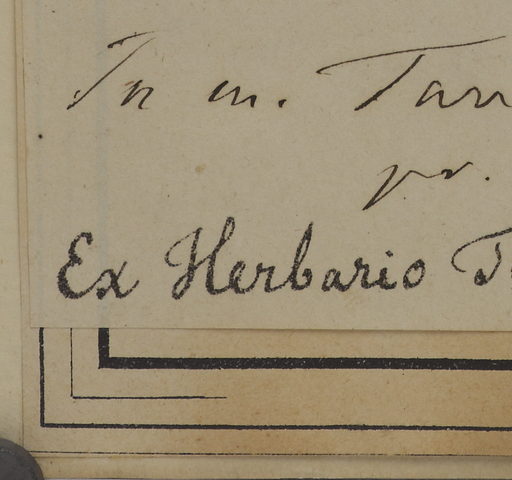 In m. Tarr
pr.
Ex Herbario T